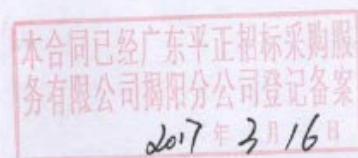 本合同已经广东平正招标采购服
务有限公司揭阳分公司登记备案
2017年3月16日